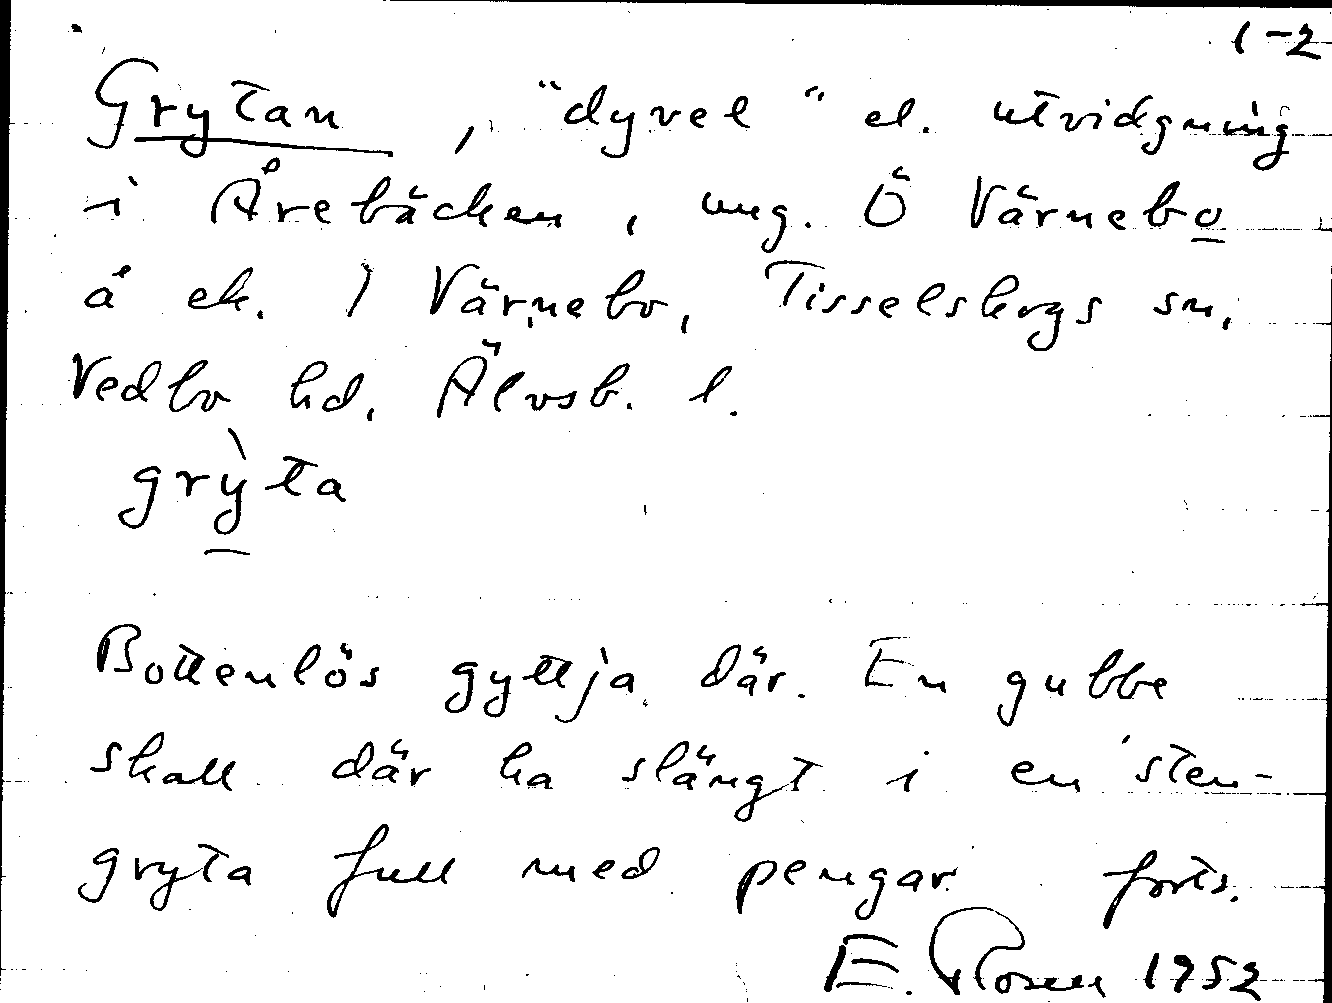 1-2
Grytan, "dyvel" el. utvidgning
i Årebäcken, ung. Ö Värnebo
å ek. 1 Värnebo, Tisselskogs sn,
Vedbo hd, Älvsb. l.
grỳta
Bottenlös gyttja där. En gubbe
skall där ha slängt i en sten-
gryta full med pengar. forts.
E. Rosén 1952